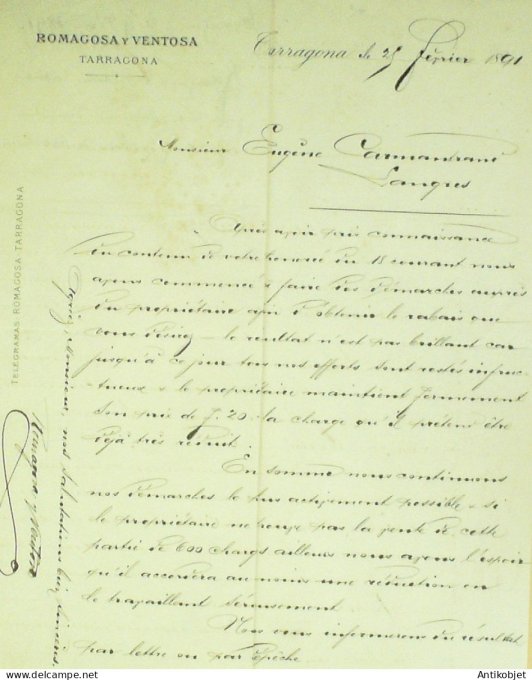 ROMAGOSA Y VENTOSA
TARRAGONA
Tarragona le 25 Février 1891
Monsieur Eugène
Langres
Après avoir pris connaissance
du contenu de votre honorée du 18 courant nous
avons commencé à faire des démarches auprès
du propriétaire afin d'obtenir le rabais que
vous désirez – le resultat n'est pas brillant car
jusqu'à ce jour tous nos efforts sont restés infruc-
-tueux & le propriétaire maintient fermement
son prix de f. 20 la charge qu'il prétend être
déjà très réduit.
En somme nous continuons
nos démarches le plus activement possible & si
le propriétaire ne trouve pas la vente de cette
partie de 600 charges ailleurs nous avons l'espoir
qu'il accordera au moins une réduction en
le travaillant sérieusement.
Nous vous informerons du résultat
par lettre ou par dépêche.
Agréez, Monsieur, nos salutations bien sincères.
Romagosa y Ventosa
TELÉGRAMAS ROMAGOSA-TARRAGONA
www.Antikobjet.com